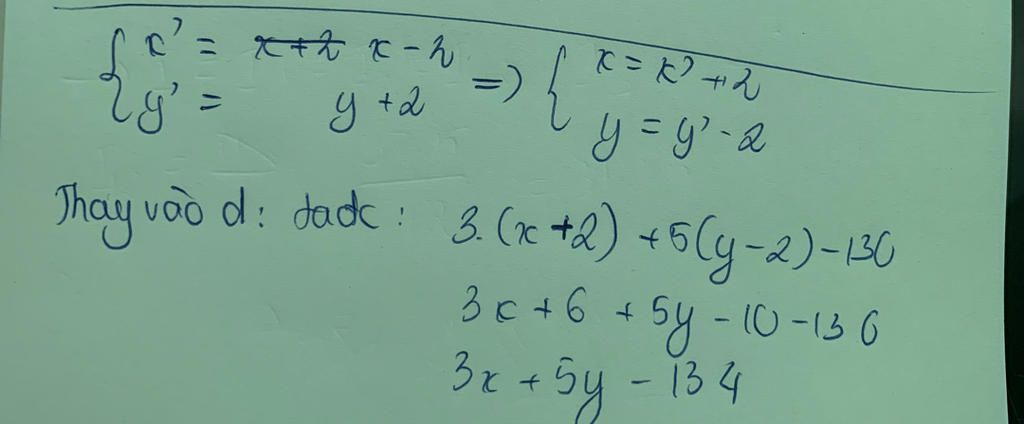 { x' = x+2 x - 2 => { x = x' + 2
{ y' = y + 2 { y = y' - 2
Thay vào d: tadc: 3.(x+2) + 5(y-2) - 130
3x + 6 + 5y - 10 - 130
3x + 5y - 134